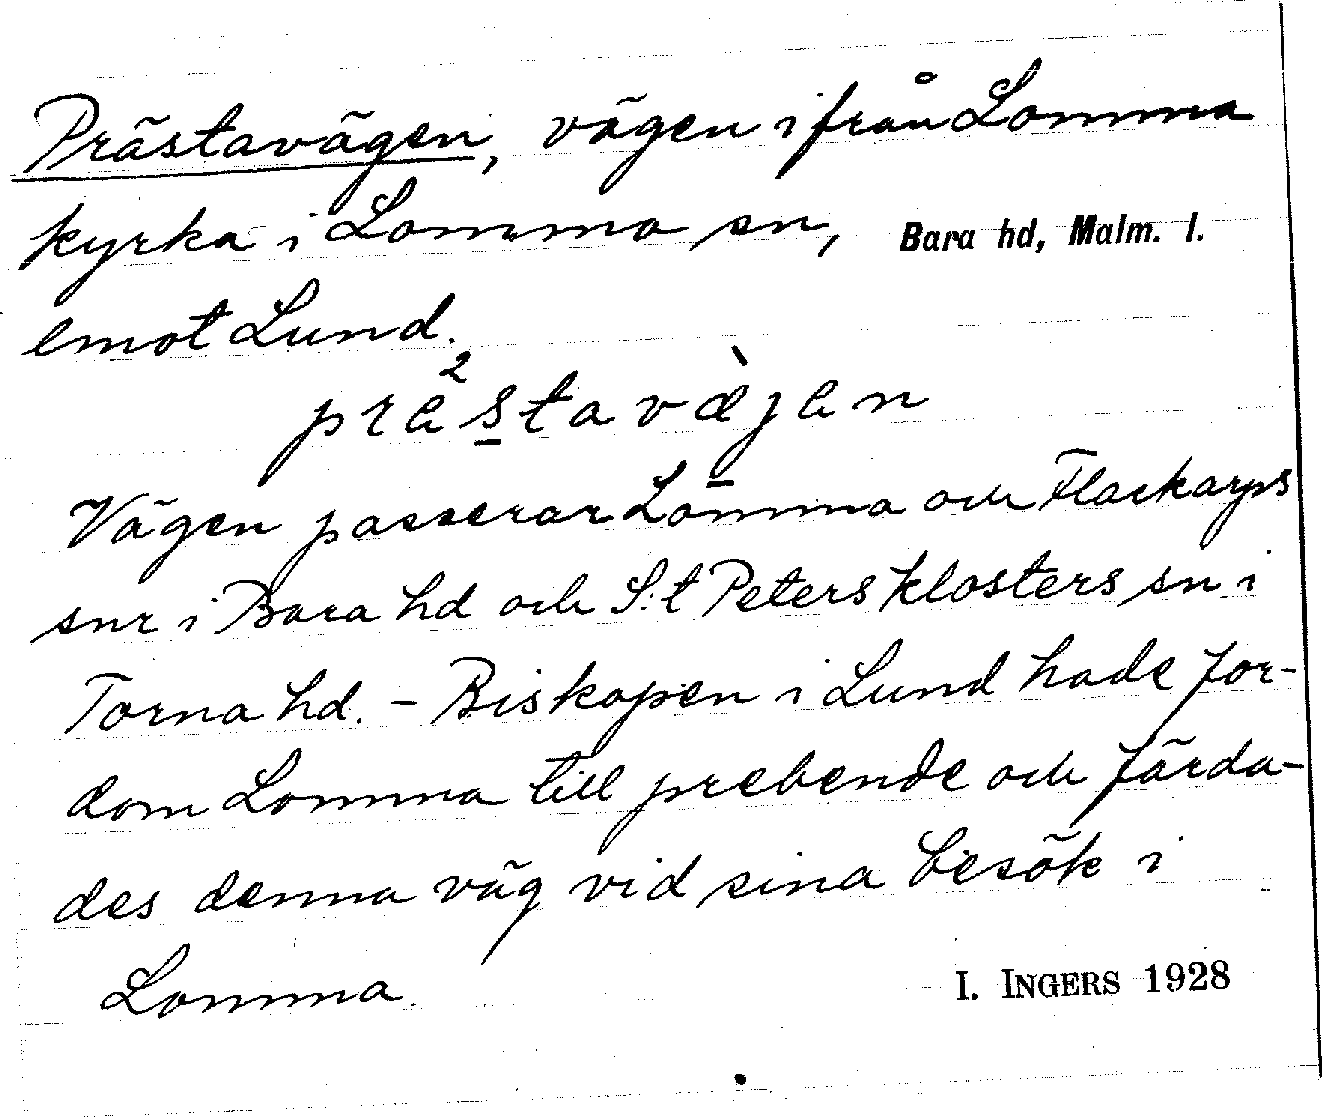 Prästavägen, vägen ifrån Lomma
kyrka i Lomma sn, Bara hd, Malm. l.
emot Lund.
prä²s̱tavæ̱̀jen
Vägen passerar Lomma och Flackarps
snr i Bara hd och S:t Peters klosters sn i
Torna hd. – Biskopen i Lund hade for-
dom Lomma till prebende och färda-
des denna väg vid sina besök i
Lomma.
I. INGERS 1928